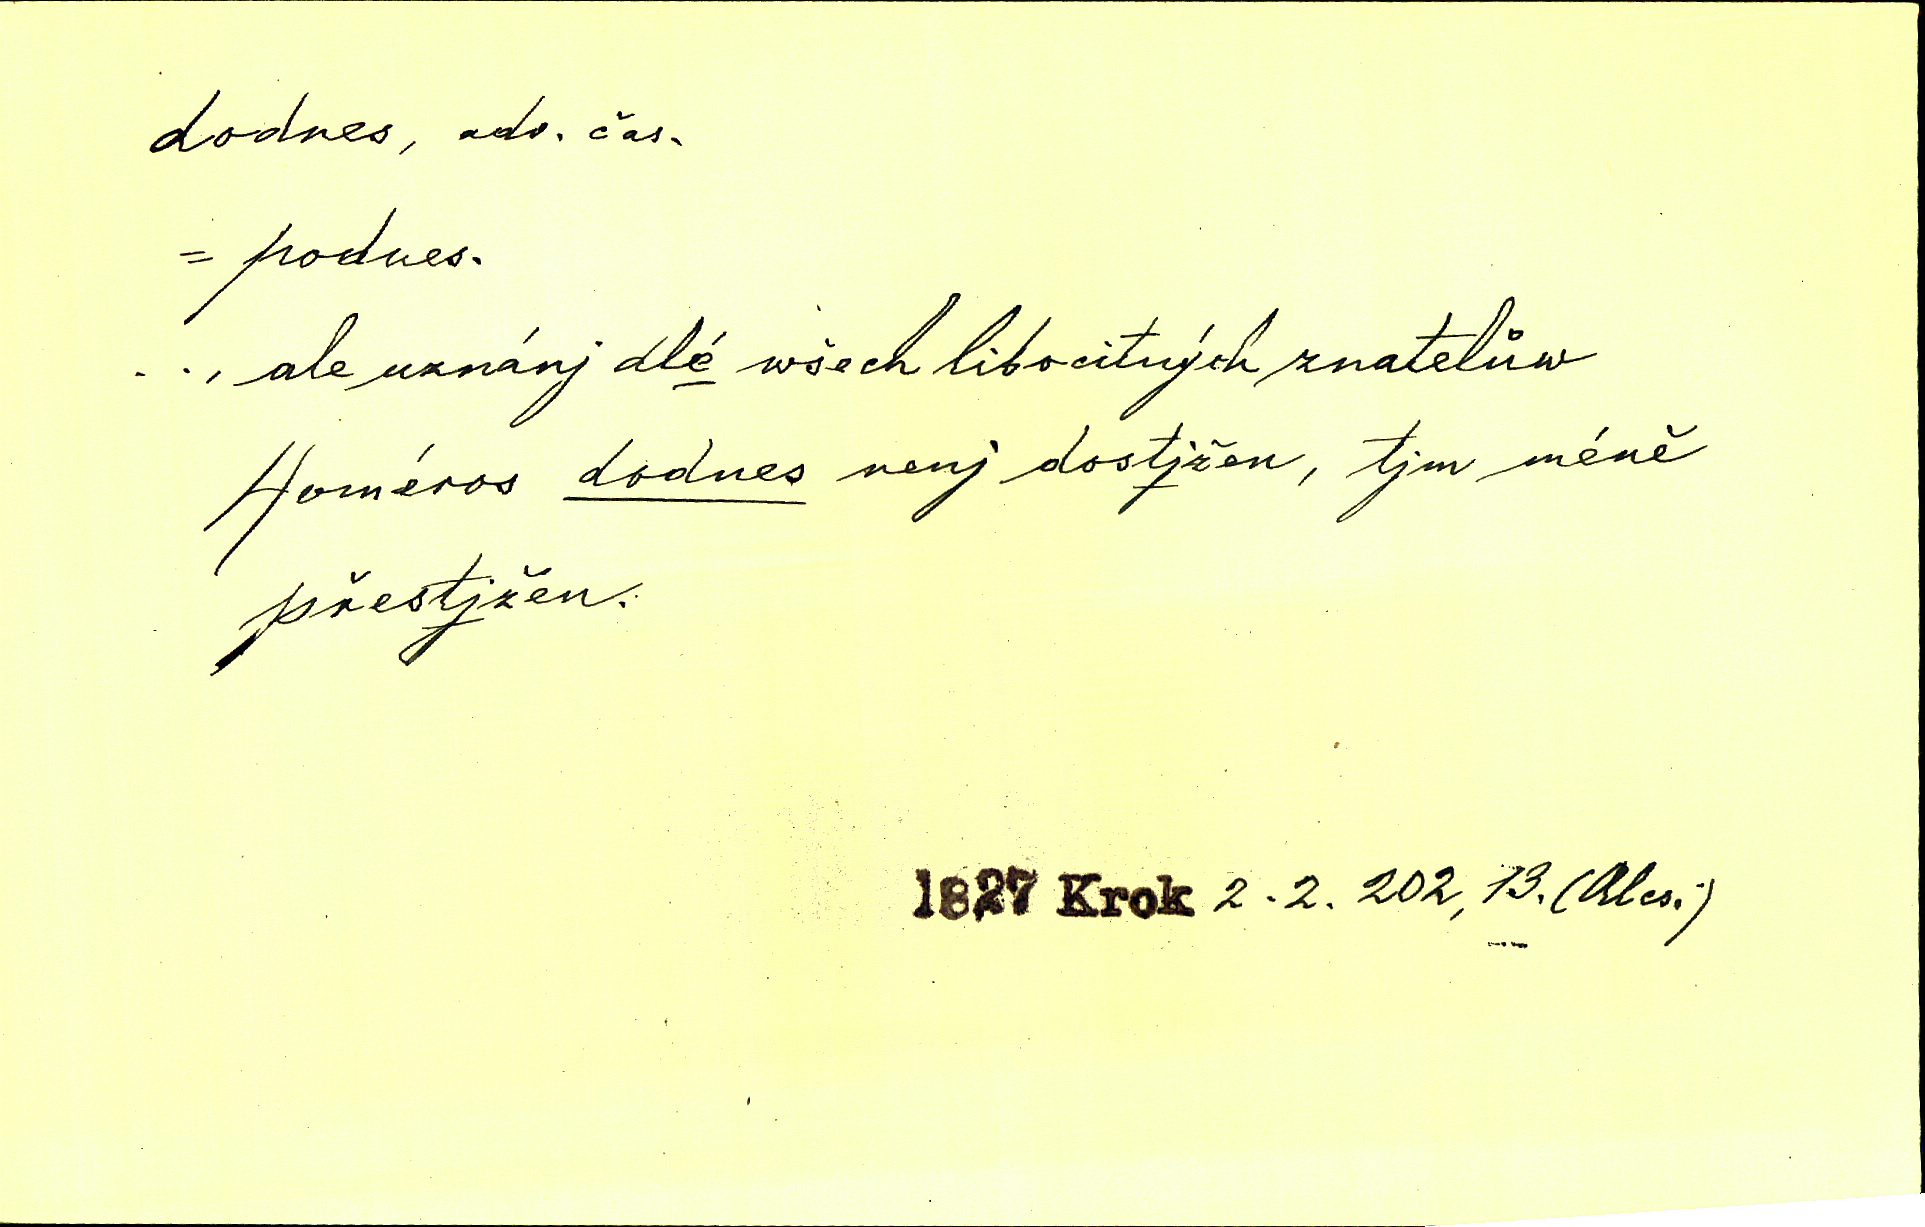 dodnes, adv. čas.
= podnes.
..., ale uznánj dlé wšech libocitných znatelůw
Homéros dodnes nenj dostjžen, tjm méně
přestjžen.
1827 Krok 2.2. 202, 13. (Ales.)